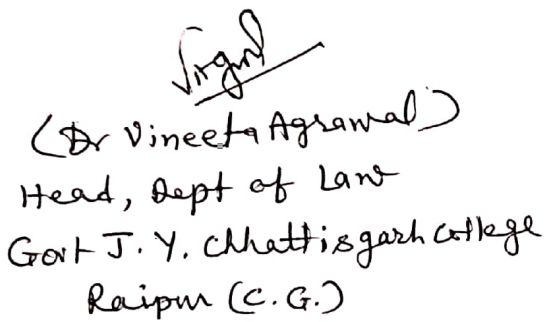 (Dr Vineeta Agrawal)
Head, Dept of Law
Govt J. Y. Chhattisgarh College
Raipur (C. G.)